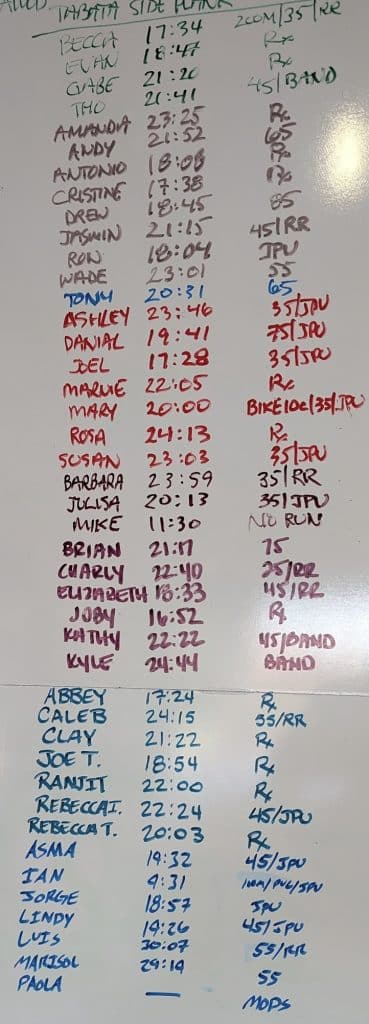 TABATA SIDE PLANK
BECCA 17:34 200M/35/RR
EVAN 18:47 Rx
GABE 21:20 Rx
THO 21:41 45/BAND
AMANDA 23:25 Rx
ANDY 21:52 65
ANTONIO 18:08 Rx
CRISTINE 17:38 Rx
DREW 18:45 85
JASMIN 21:15 45/RR
RON 18:04 JPU
WADE 23:01 55
TONY 20:31 65
ASHLEY 23:46 35/JPU
DANIAL 19:41 75/JPU
JOEL 17:28 35/JPU
MARNIE 22:05 Rx
MARY 20:00 BIKE10c/35/JPU
ROSA 24:13 Rx
SUSAN 23:03 35/JPU
BARBARA 23:59 35/RR
JULISA 20:13 35/JPU
MIKE 11:30 NO RUN
BRIAN 21:17 75
CHARLY 22:40 25/RR
ELIZABETH 18:33 45/RR
JOBY 16:52 Rx
KATHY 22:22 45/BAND
KYLE 24:44 BAND
ABBEY 17:24 Rx
CALEB 24:15 55/RR
CLAY 21:22 Rx
JOE T. 18:54 Rx
RANJIT 22:00 Rx
REBECCA I. 22:24 45/JPU
REBECCA T. 20:03 Rx
ASMA 19:32 45/JPU
IAN 9:31 100M/PVC/JPU
JORGE 18:57 JPU
LINDY 19:26 45/JPU
LUIS 30:07 55/RR
MARISOL 29:19 55
PAOLA — MODS